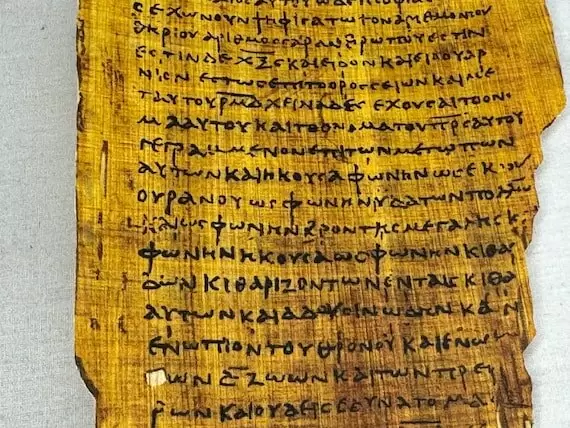 ΕΧΩΝΟΥΝΨΗΦΙϹΑΤΩΤΟΝΑ
ΕϹΤΙΝΔΕΧΞϚΚΑΙΕΙΔΟΝΚΑΙΕΙΔΟΥΑΡ
ΝΙΟΝΕϹΤΩϹΕΠΙΤΟΟΡΟϹϹΕΙΩΝΚΑΙΜΕ
ΤΑΥΤΟΥΡΜΔΧΕΙΛΙΑΔΕϹΕΧΟΥϹΑΙΤΟΟΝΟ
ΜΑΑΥΤΟΥΚΑΙΤΟΟΝΟΜΑΤΟΥΠΡϹΑΥΤΟΥ
ΓΕΓΡΑΜΜΕΝΟΝΕΠΙΤΩΝΜΕΤΩΠΩΝ
ΑΥΤΩΝΚΑΙΗΚΟΥϹΑΦΩΝΗΝΩϹΕΚ
ΟΥΡΑΝΟΥΩϹΦΩΝΗΝΥΔΑΤΩΝΠΟΛΛΩΝ
ΚΑΙΩϹΦΩΝΗΝΒΡΟΝΤΗϹΜΕΓΑΛΗϹΚ
ΦΩΝΗΝΗΚΟΥϹΑΩϹΦΩΝΗΝΚΙΘΑ
ΔΩΝΚΙΘΑΡΙΖΟΝΤΩΝΕΝΤΑΙϹΚΙΘΑ
ΑΥΤΩΝΚΑΙΑΔΟΥϹΙΝΩΔΗΝΚΑΙΝ
ΕΝΩΠΙΟΝΤΟΥΘΡΟΝΟΥΚΑΙΕΝΩ
ΤΩΝΔΖΩΩΝΚΑΙΤΩΝΠΡΕϹ
ΡΩΝΚΑΙΟΥΔΕΙϹΕΔΥΝΑΤΟΜΑ